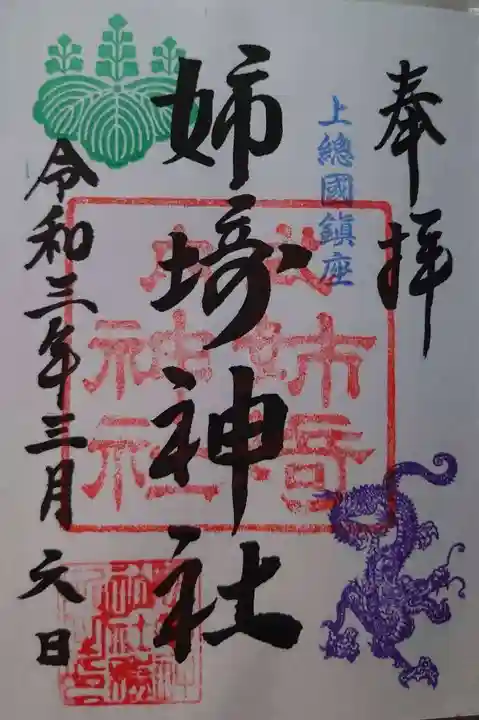 奉拝
上總國鎮座
姉埼神社
令和三年三月六日